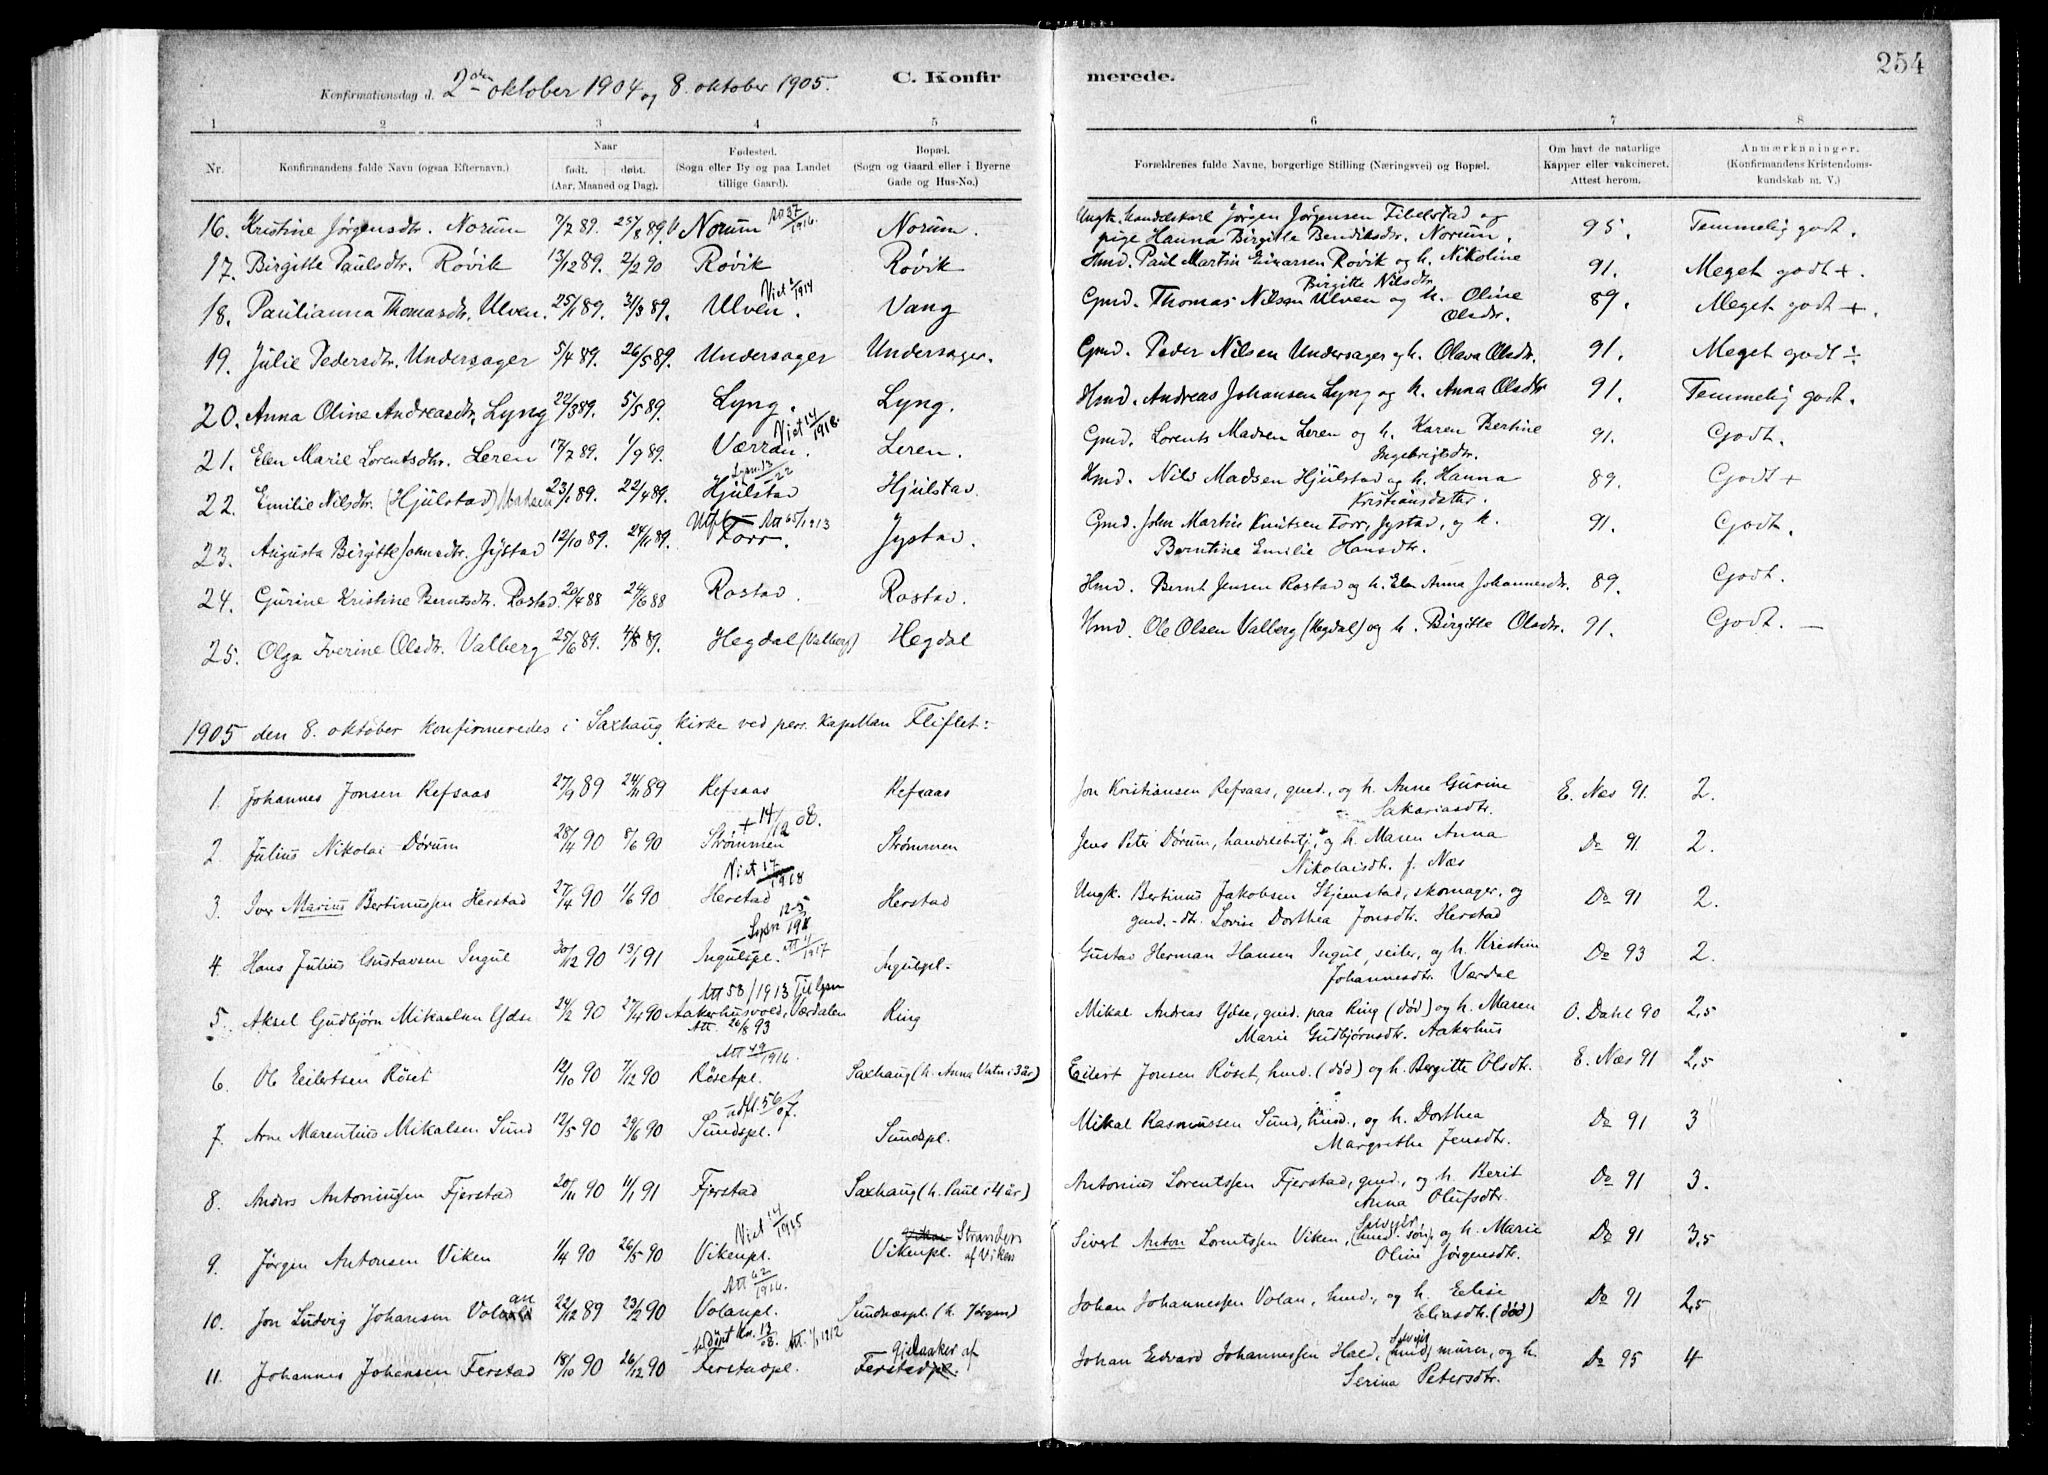 254
Konfirmationsdag d. 2den oktober 1904 og 8. oktober 1905.
C. Konfirmerede.
1 2 3 4 5 6 7 8
Nr. Konfirmandens fulde Navn (ogsaa Efternavn.) Naar født. døbt. (Aar, Maaned og Dag). Fødested. (Sogn eller By og paa Landet tillige Gaard). Bopæl. (Sogn og Gaard eller i Byerne Gade og Hus-No.) Forældrenes fulde Navne, borgerlige Stilling (Næringsvei) og Bopæl. Om havt de naturlige Kapper eller vakcineret. Attest herom. Anmærkninger. (Konfirmandens Kristendomskundskab m. V.)
16. Kristine Jørgensdtr. Norum 7/7 89. 25/8 89. Norum 1916. Norum. Ungk. handelskarl Jørgen Jørgensen Fibelstad og pige Hanna Birgitte Bendiksdtr. Norum. 95. Temmelig godt.
17. Birgitte Paulsdtr. Røvik 13/12 89. 2/2 90 Røvik Røvik Hmd. Paul Martin Einarsen Røvik og h. Nikoline Birgitte Nilsdtr. 91. Meget godt +.
18. Paulianna Thomasdtr. Ulven. 25/1 89. 31/3 89. Ulven. Viet 1914 Vang Gmd. Thomas Nilsen Ulven og h. Oline Olsdtr. 89. Meget godt +.
19. Julie Pedersdtr. Undersager 5/4 89. 26/5 89. Undersager Undersager. Gmd. Peder Nilsen Undersager og h. Olava Olsdtr. 91. Meget godt ÷
20. Anna Oline Andreasdtr. Lyng 22/3 89. 5/5 89. Lyng. Lyng. Hmd. Andreas Johansen Lyng og h. Anna Olsdtr 91. Temmelig godt.
21. Elen Marie Lorentsdtr. Leren 17/7 89. 1/9 89. Værran. Viet 14/1918. Leren. Gmd. Lorents Madsen Leren og h. Karen Bertine Ingebrigtsdtr. 91. Godt.
22. Emilie Nilsdtr. (Hjulstad) Madsen 23/1 89. 22/4 89. Hjulstad Hjulstad. Hmd. Nils Madsen Hjulstad og h. Hanna Kristiansdatter. 89. Godt +
23. Augusta Birgitte Johnsdtr. Jystad 12/10 89. 24/11 89. Utfl. Att 65/1913 Forr. Jystad. Gmd. John Martin Knutsen Forr, Jystad, og h. Berntine Emilie Hansdtr. 91. Godt.
24. Gurine Kristine Berntsdtr. Rostad. 20/4 88 24/6 88 Rostad. Rostad. Hmd. Bernt Jensen Rostad og h. Elen Anna Johannesdtr. 89. Godt.
25. Olga Iverine Olsdtr. Valberg 25/6 89. 4/8 89. Hegdal (Valberg) Hegdal Hmd. Ole Olsen Valberg (Hegdal) og h. Birgitte Olsdtr. 91. Godt. —
1905 den 8. oktober konfirmeredes i Saxhaug kirke ved pers. kapellan Fliflet:
1. Johannes Jonsen Refsaas 27/9 89 24/11 89 Refsaas Refsaas Jon Kristiansen Refsaas, gmd., og h. Anne Gurine Sakariasdtr. E. Næs 91. 2.
2 Julius Nikolai Dørum 28/4 90 8/6 90 + 14/12 08. Strømmen Strømmen Jens Peter Dørum, handelsbetj., og h. Maren Anna Nikolaisdtr. f. Næs Do 91. 2.
3. Iver Marius Bertinussen Herstad 27/4 90 1/6 90 Viet 17/1918 Herstad Herstad Ungk. Bertinus Jakobsen Skjemstad, skomager, og gmd.-dt. Lovise Dorthea Jonsdtr. Herstad Do 91 2.
4. Hans Julius Gustavsen Ingul 30/12 90 13/1 91 Ingulspl. Att 1917 Ingulspl. Gustav Herman Hansen Ingul, seiler, og h. Kristine Johannesdtr. Værdal Do 93 2.
5. Aksel Gudbjørn Mikaelsen Ydse 24/2 90 27/4 90 Att 58/1913 Til lysn Aakerhusvold, Værdalen Att. 26/8 93 Ring Mikal Andreas Ydse, gmd. paa Ring (død) og h. Maren Marie Gudbjørnsdtr. Aakerhus O. Dahl 90 2,5
6. Ole Eilertsen Røset 12/10 90 7/12 90 Att 49/1916. Røsetpl. Saxhaug (h. Anna Vatn i 3 år) Eilert Jonsen Røset, hmd. (død) og h. Bergitte Olsdtr. E. Næs 91 2,5
7. Arne Marentius Mikalsen Sund 12/5 90 29/6 90 udfl. 56/07. Sundspl. Sundspl. Mikal Rasmussen Sund, husd., og h. Dorthea Margrethe Jensdtr. Do 91 3
8. Anders Antoniussen Fjerstad 20/11 90 11/1 91 Fjerstad Saxhaug (h. Paul i 4 år) Antonius Lorentssen Fjerstad, gmd., og h. Berit Anna Olufsdtr. Do 91 3.
9. Jørgen Antonsen Viken 1/4 90 26/5 90 Viet 14/1915 Vikenpl. Vikenpl. Stranden af Viken Sivert Anton Lorentssen Viken, Selvejer (hmd. søn), og h. Marie Oline Jørgensdtr. Do 91 3,5
10. Jon Ludvig Johansen Volan 22/12 89 23/2 90 Att 62/1916. Volanpl. Sundnæspl. (h. Jørgen) Johan Johannessen Volan, hmd., og h. Eelise Eliasdtr. (død) Do 91 2,5
11. Johannes Johansen Ferstad 18/10 90 26/12 90 Att. 1/1 1912 Ferstadpl. Gjetaaker af Ferstadpl. Johan Edvard Johannessen Hald, Selvejer (hmd) murer, og h. Serina Petersdtr. Do 95 4